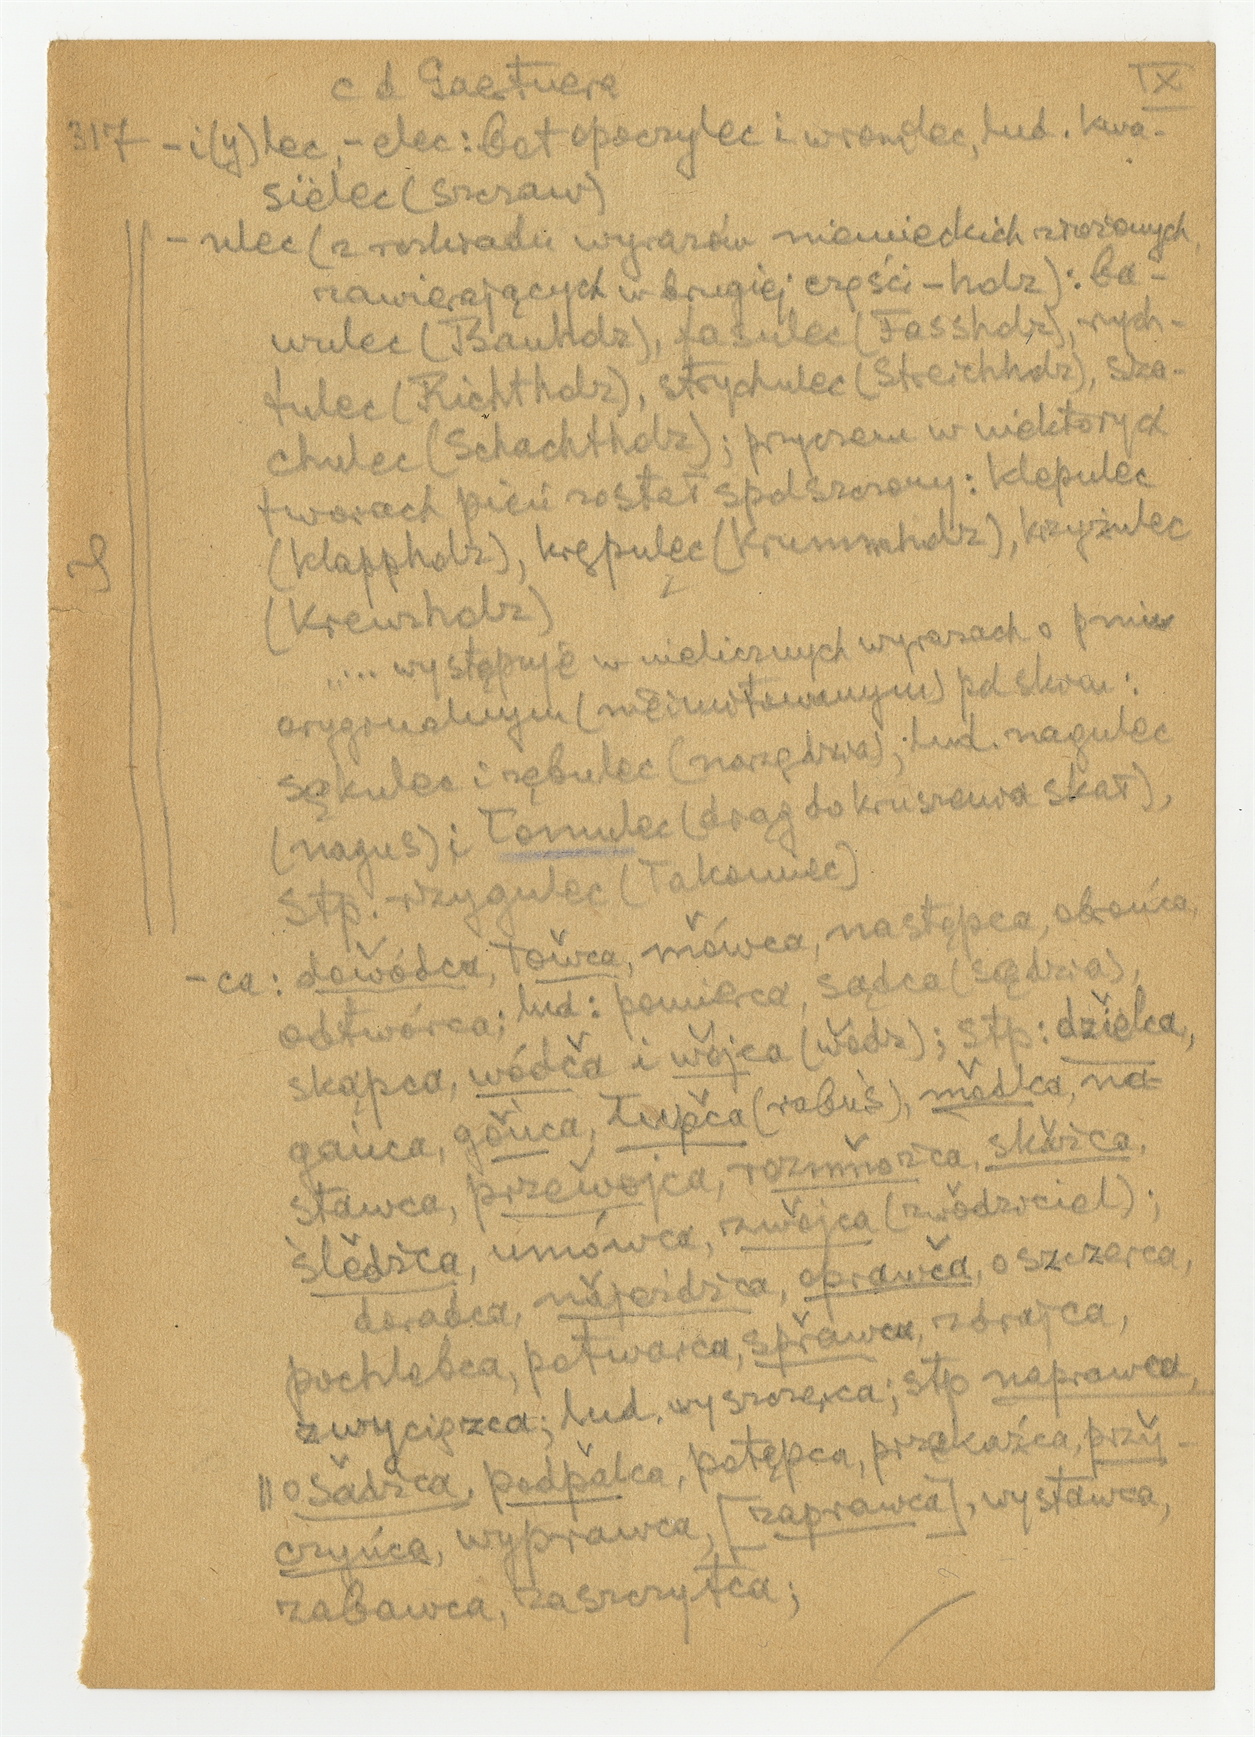 c d Gaertnera
IX
317 -i(y)lec, -elec: bot opoczylec i wronelec, lud. kwa-
sielec (szczaw)
-ulec (z rozkładu wyrazów niemieckich złożonych,
zawierających w drugiej części -holz): ba-
wulec (Bauholz), fasulec (Fassholz), rych-
tulec (Richtholz), strychulec (Streichholz), sza-
chulec (Schachtholz); przyczem w niektórych
tworach pień został spolszczony: klepulec
(Klappholz), krępulec (Krummholz), krzyżulec
(Kreuzholz)
„... występuje w nielicznych wyrazach o pniu
oryginalnym (nieimitowanym) polskim:
sękulec i zębulec (narzędzia); lud. nagulec
(nagus) i łomulec (drąg do kruszenia skał),
stp. rzygulec (łakomiec)
-ca: dowódca, łowca, mówca, następca, obrońca,
odtwórca; lud: pomierca, sądca (sędzia),
skąpca, wódca i wojca (wódz); stp: dzielca,
gańca, gońca, łupca (rabuś), módlca, na-
stawca, przewojca, rozmnożca, skaźca,
śledźca, umówca, zwojca (zwodziciel);
doradca, najeźdźca, oprawca, oszczerca,
pochlebca, potwarca, sprawca, zdrajca,
zwycięzca; lud. wyszczerca; stp naprawca,
|| osadźca, podpalca, potępca, przekaźca, przy-
czyńca, wyprawca, [zaprawca], wystawca,
zabawca, zaszczytca;